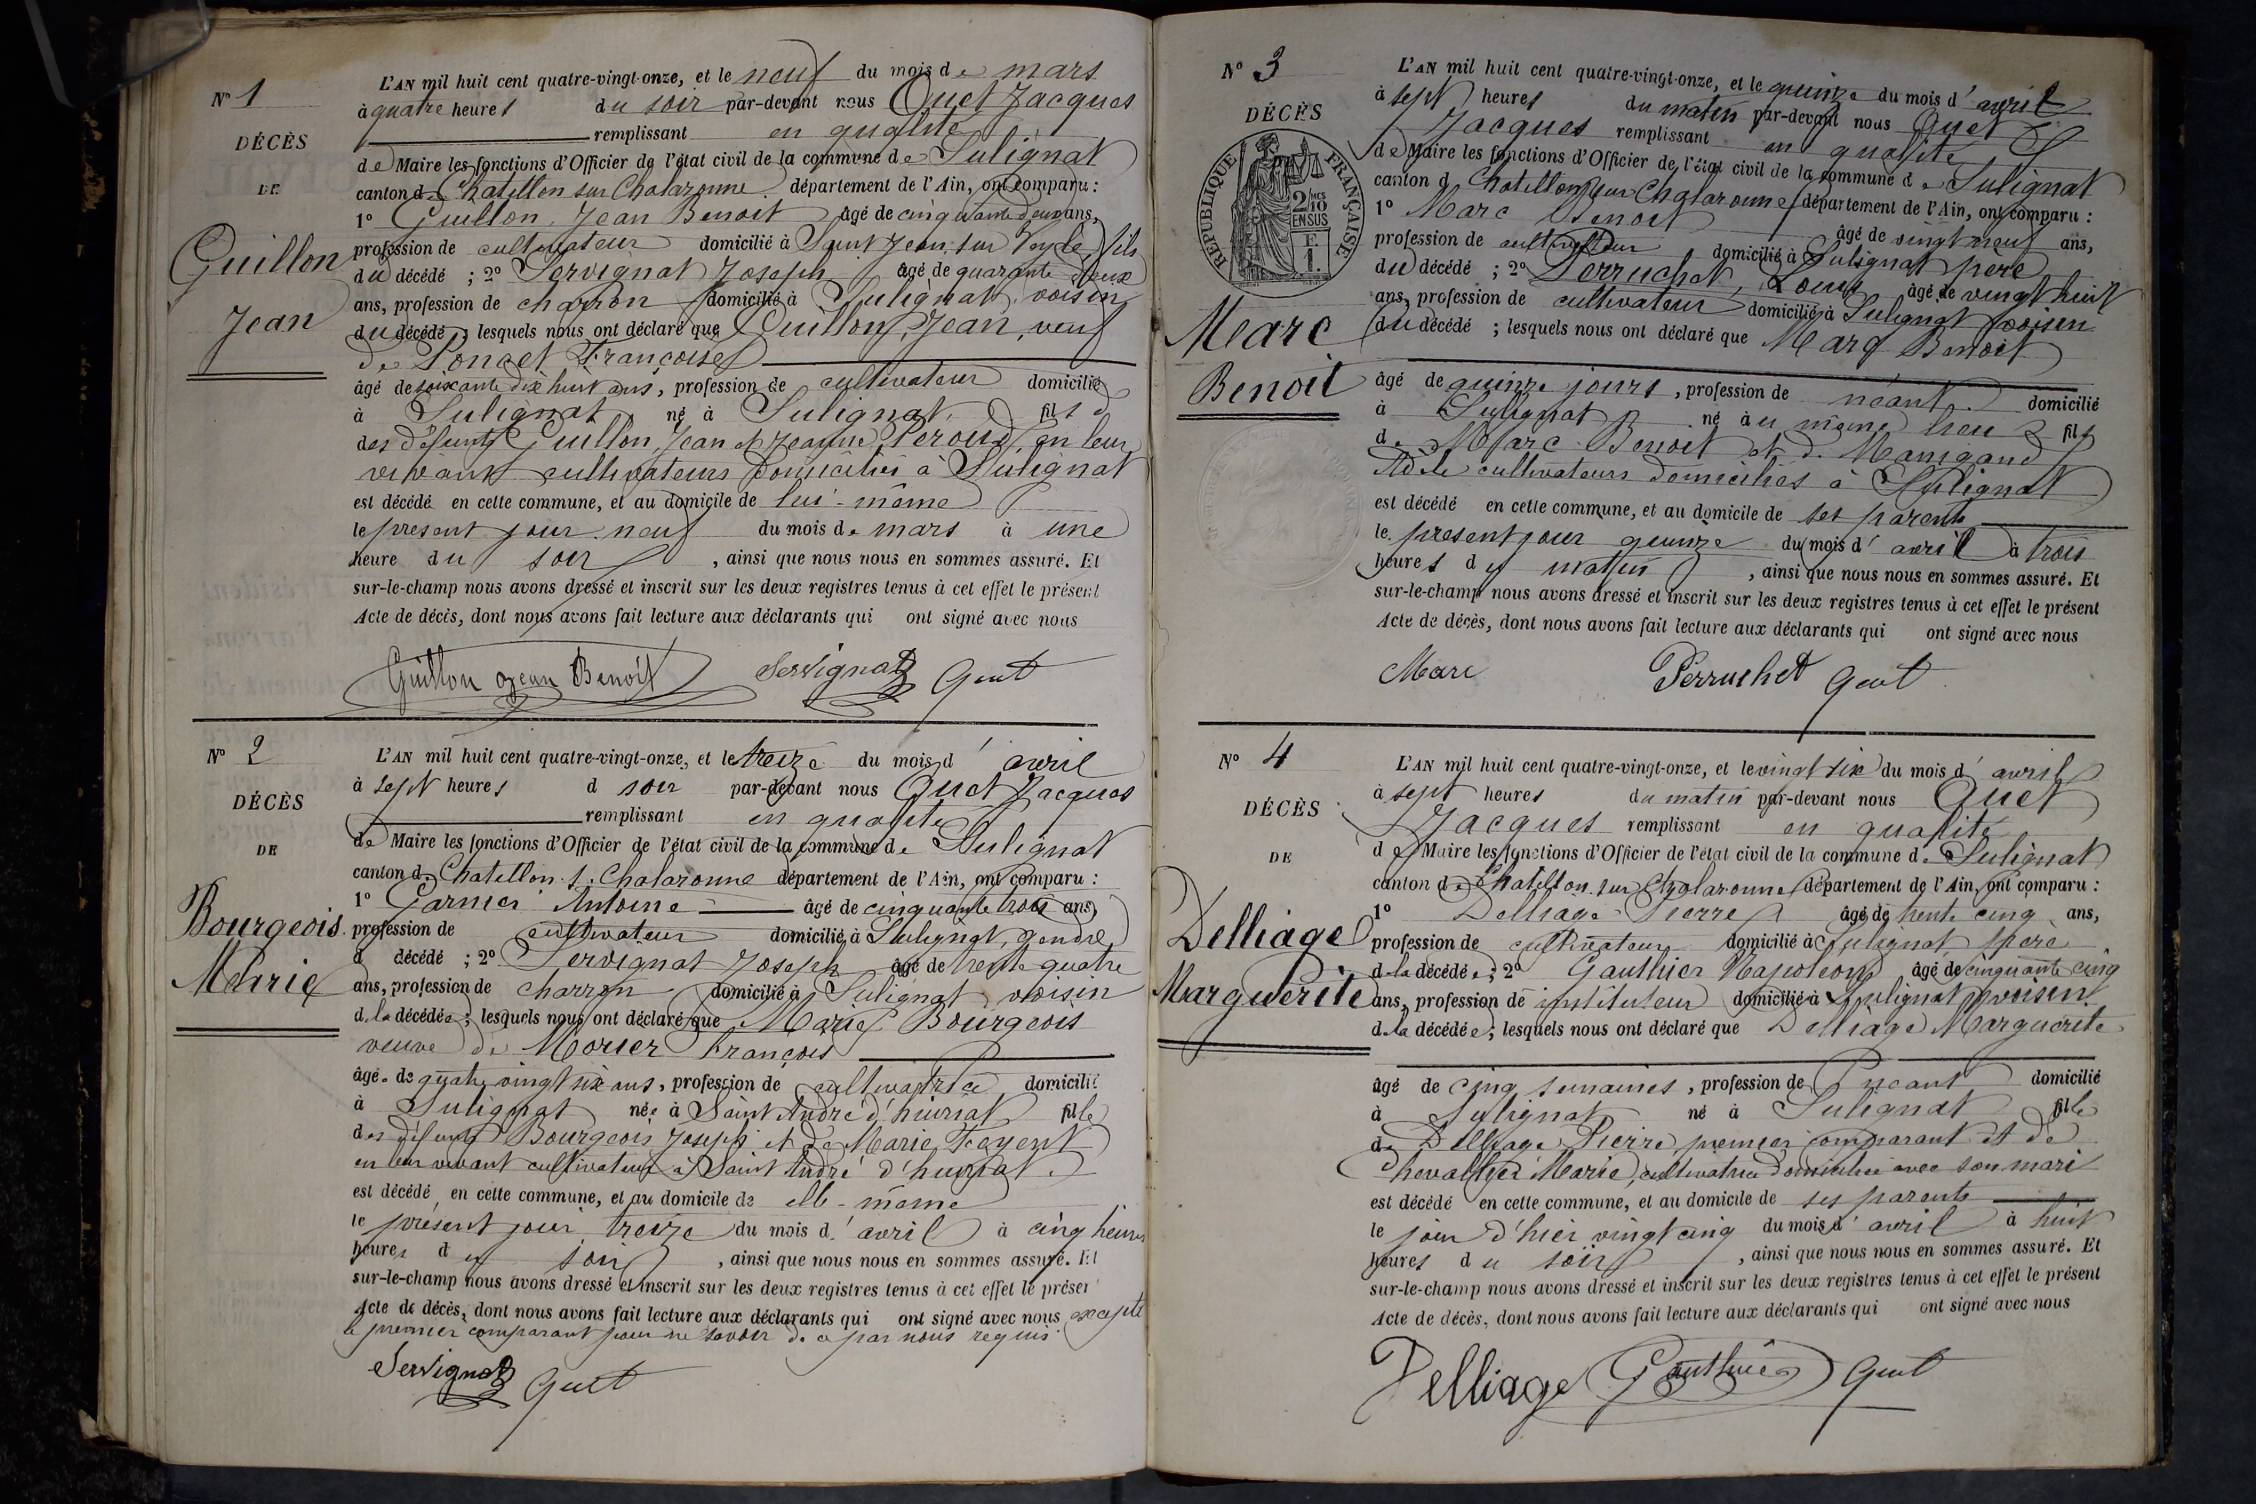 N° 1
DÉCÈS
DE
Guillon
Jean
L'AN mil huit cent quatre-vingt-onze, et le neuf du mois de mars
à quatre heures du soir par-devant nous Quet Jacques
remplissant en qualité
de Maire les fonctions d'Officier de l'état civil de la commune de Sulignat
canton de Chatillon sur Chalaronne département de l'Ain, ont comparu :
1° Guillon Jean Benoit âgé de cinquante deux ans,
profession de cultivateur domicilié à Saint Jean sur Veyle, fils
du décédé ; 2° Servignat Joseph âgé de quarante deux
ans, profession de charron domicilié à Sulignat voisin
du décédé ; lesquels nous ont déclaré que Guillon, Jean, veuf
de Poncet Françoise
âgé de soixante dix huit ans, profession de cultivateur domicilié
à Sulignat, né à Sulignat fils d
des défunts Guillon, Jean et Jeanne Peroud en leur
vivant cultivateurs domiciliés à Sulignat
est décédé en cette commune, et au domicile de lui-même
le présent jour neuf du mois de mars à une
heure du soir, ainsi que nous nous en sommes assuré. Et
sur-le-champ nous avons dressé et inscrit sur les deux registres tenus à cet effet le présent
Acte de décès, dont nous avons fait lecture aux déclarants qui ont signé avec nous
Guillon Jean Benoit Servignat Quet
N° 2
DÉCÈS
DE
Bourgeois
Marie
L'AN mil huit cent quatre-vingt-onze, et le treize du mois d'avril
à sept heures d soir par-devant nous Quet Jacques
remplissant en qualité
de Maire les fonctions d'Officier de l'état civil de la commune de Sulignat
canton de Chatillon s. Chalaronne département de l'Ain, ont comparu :
1° Garnier Antoine âgé de cinquante trois ans,
profession de cultivateur domicilié à Sulignat, gendre
d décédé ; 2° Servignat Joseph âgé de trente quatre
ans, profession de charron domicilié à Sulignat voisin
de la décédée ; lesquels nous ont déclaré que Marie Bourgeois
veuve de Morier François
âgé de quatre vingt six ans, profession de cultivatrice domicilié
à Sulignat née à Saint André d'huiriat fille
des défunts Bourgeois Joseph et de Marie
en leur vivant cultivateurs à Saint André d'huiriat
est décédé en cette commune, et au domicile de elle-même
le présent jour treize du mois d'avril à cinq heures
heures du soir, ainsi que nous nous en sommes assuré. Et
sur-le-champ nous avons dressé et inscrit sur les deux registres tenus à cet effet le présent
Acte de décès, dont nous avons fait lecture aux déclarants qui ont signé avec nous excepté
le premier comparant pour ne savoir de ce par nous requis
Servignat Quet
N° 3
DÉCÈS
RÉPUBLIQUE FRANÇAISE
2/10
EN SUS
Marc
Benoit
L'AN mil huit cent quatre-vingt-onze, et le quinze du mois d'avril
à sept heures du matin par-devant nous Quet
Jacques remplissant en qualité
de Maire les fonctions d'Officier de l'état civil de la commune de Sulignat
canton d Chatillon sur Chalaronne département de l'Ain, ont comparu :
1° Marc Benoit âgé de vingt neuf ans,
profession de cultivateur domicilié à Sulignat père
du décédé ; 2° Perruchet, Louis âgé de vingt huit
ans, profession de cultivateur domicilié à Sulignat voisin
du décédé ; lesquels nous ont déclaré que Marc Benoit
âgé de quinze jours, profession de néant domicilié
à Sulignat né au même lieu fils
de Marc Benoit et de Manigand
Adèle cultivateurs domiciliés à Sulignat
est décédé en cette commune, et au domicile de ses parents
le présent jour quinze du mois d'avril à trois
heures du matin, ainsi que nous nous en sommes assuré. Et
sur-le-champ nous avons dressé et inscrit sur les deux registres tenus à cet effet le présent
Acte de décès, dont nous avons fait lecture aux déclarants qui ont signé avec nous
Marc Perruchet Quet
N° 4
DÉCÈS
DE
Delliage
Marguerite
L'AN mil huit cent quatre-vingt-onze, et le vingt six du mois d'avril
à sept heures du matin par-devant nous Quet
Jacques remplissant en qualité
de Maire les fonctions d'Officier de l'état civil de la commune de Sulignat
canton de Chatillon sur Chalaronne département de l'Ain, ont comparu :
1° Delliage Pierre âgé de trente cinq ans,
profession de cultivateur domicilié à Sulignat père
de la décédée ; 2° Gauthier Napoléon âgé de cinquante cinq
ans, profession de instituteur domicilié à Sulignat voisin
de la décédée ; lesquels nous ont déclaré que Delliage Marguerite
âgé de cinq semaines, profession de néant domicilié
à Sulignat né à Sulignat fille
de Delliage Pierre premier comparant et de
Chevallier Marie, cultivatrice domiciliée avec son mari
est décédé en cette commune, et au domicile de ses parents
le jour d'hier vingt cinq du mois d'avril à huit
heures du soir, ainsi que nous nous en sommes assuré. Et
sur-le-champ nous avons dressé et inscrit sur les deux registres tenus à cet effet le présent
Acte de décès, dont nous avons fait lecture aux déclarants qui ont signé avec nous
Delliage Gauthier Quet